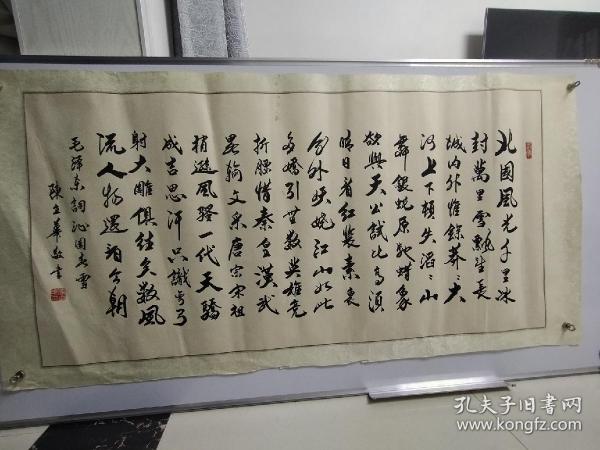 北國風光千里冰
封萬里雪飄望長
城內外惟餘莽ミ大
河上下頓失滔ミ山
舞銀蛇原馳蠟象
欲與天公試比高須
晴日看紅裝素裹
分外妖嬈江山如此
多嬌引無數英雄競
折腰惜秦皇漢武
略輸文采唐宗宋祖
稍遜風騷一代天驕
成吉思汗只識彎弓
射大雕俱往矣數風
流人物還看今朝
毛澤東詞沁園春雪
陳立華敬書
孔夫子旧书网
www.kongfz.com